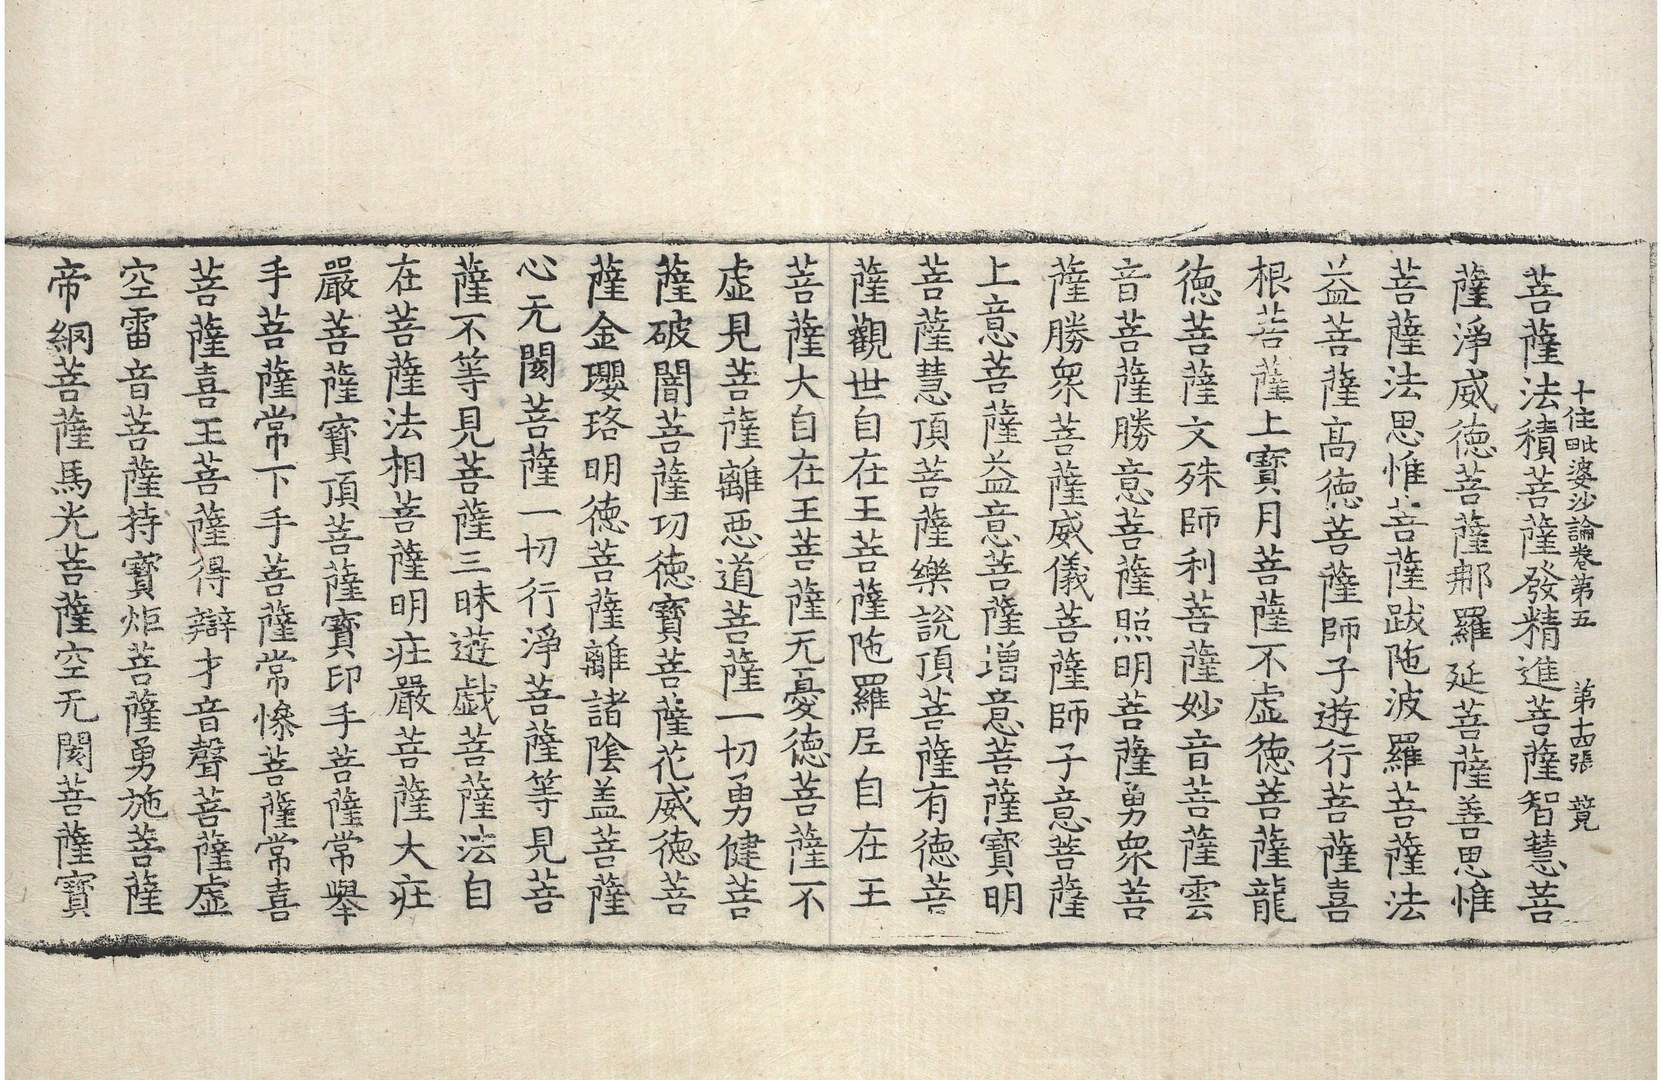 十住毗婆沙論卷第五　第十四張　竟
菩薩法積菩薩發精進菩薩智慧菩
薩淨威德菩薩那羅延菩薩善思惟
菩薩法思惟菩薩跋陁波羅菩薩法
益菩薩高德菩薩師子遊行菩薩喜
根菩薩上寶月菩薩不虛德菩薩龍
德菩薩文殊師利菩薩妙音菩薩雲
音菩薩勝意菩薩照明菩薩勇衆菩
薩勝衆菩薩威儀菩薩師子意菩薩
上意菩薩益意菩薩增意菩薩寶明
菩薩慧頂菩薩樂說頂菩薩有德菩
薩觀世自在王菩薩陁羅尼自在王
菩薩大自在王菩薩无憂德菩薩不
虛見菩薩離惡道菩薩一切勇健菩
薩破闇菩薩功德寶菩薩花威德菩
薩金瓔珞明德菩薩離諸陰盖菩薩
心无閡菩薩一切行淨菩薩等見菩
薩不等見菩薩三昧遊戱菩薩法自
在菩薩法相菩薩明疘嚴菩薩大疘
嚴菩薩寶頂菩薩寶印手菩薩常舉
手菩薩常下手菩薩常慘菩薩常喜
菩薩喜王菩薩得辯才音聲菩薩虛
空雷音菩薩持寶炬菩薩勇施菩薩
帝網菩薩馬光菩薩空无閡菩薩寶